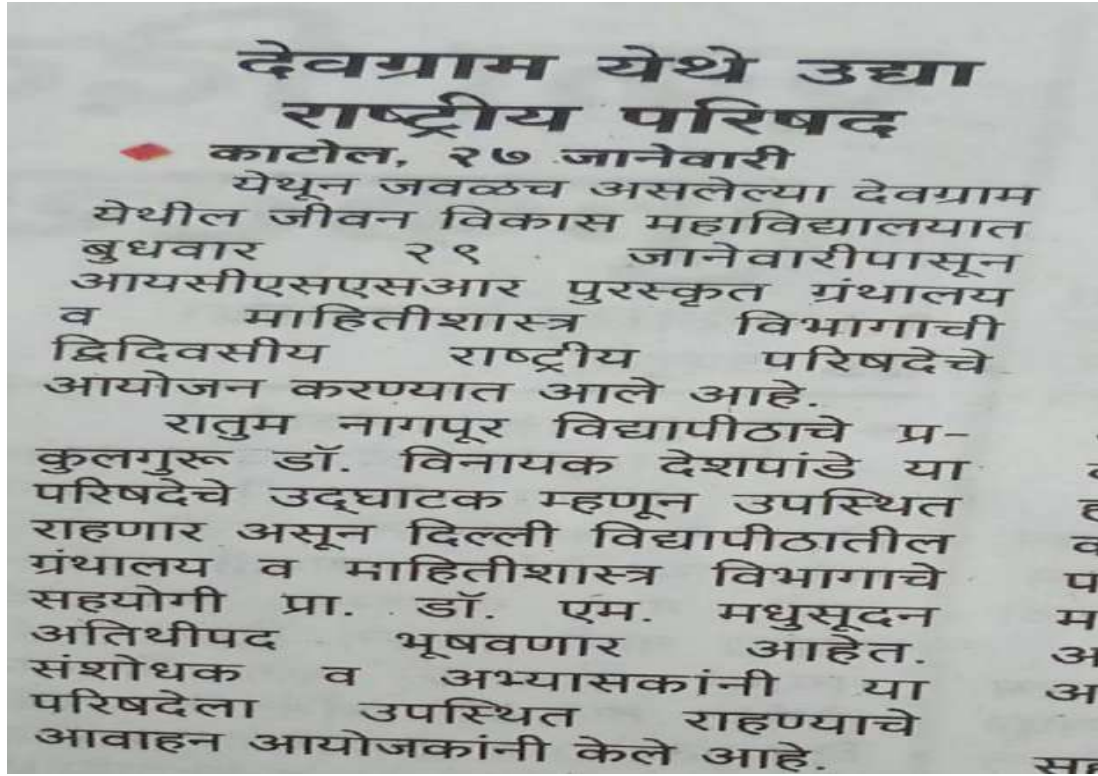 देवग्राम येथे उद्या
राष्ट्रीय परिषद
काटोल, २७ जानेवारी
येथून जवळच असलेल्या देवग्राम
येथील जीवन विकास महाविद्यालयात
बुधवार २९ जानेवारीपासून
आयसीएसएसआर पुरस्कृत ग्रंथालय
व माहितीशास्त्र विभागाची
द्विदिवसीय राष्ट्रीय परिषदेचे
आयोजन करण्यात आले आहे.
रातुम नागपूर विद्यापीठाचे प्र-
कुलगुरू डॉ. विनायक देशपांडे या
परिषदेचे उद्‌घाटक म्हणून उपस्थित
राहणार असून दिल्ली विद्यापीठातील
ग्रंथालय व माहितीशास्त्र विभागाचे
सहयोगी प्रा. डॉ. एम. मधुसूदन
अतिथीपद भूषवणार आहेत.
संशोधक व अभ्यासकांनी या
परिषदेला उपस्थित राहण्याचे
आवाहन आयोजकांनी केले आहे.